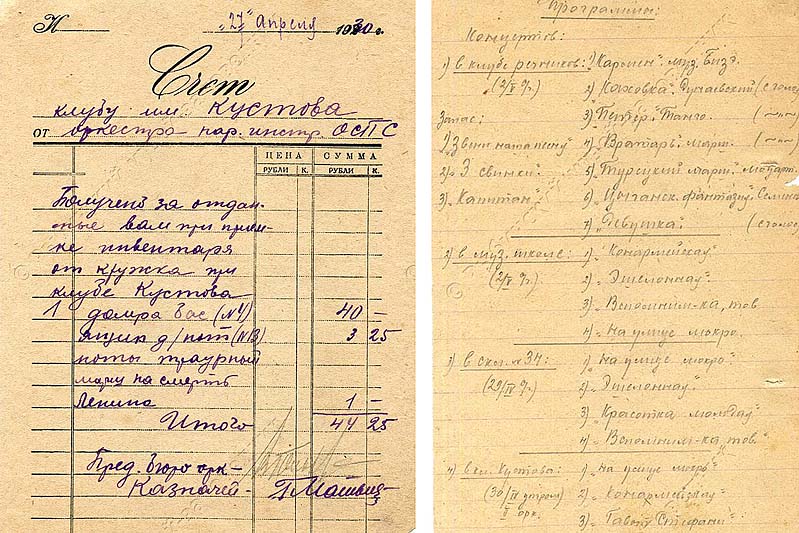 К
„27“ апреля 1930 г.
Счет
клубу им. Кустова
от оркестра нар. инстр. ОСПС
ЦЕНА СУММА
РУБЛИ К. РУБЛИ К.
Получено за отдан-
ные вам при прием-
ке инвентаря
от кружка при
клубе Кустова
1 домра бас (№4) 40 —
ящик д/нот (№13) 3 25
ноты траурный
марш на смерть
Ленина 1 —
Итого 44 25
Пред. бюро орк-
Казначей-
Программы:
Концертов:
1) в клубе речников:
(2/V
1) „Кармен“ муз. Бизэ.
2) Каховка. Дунаевский
3) „Петер“. Танго.
4) „Вратарь“. марш.
5) Турецкий марш. Моцарт.
6) Цыганск. фантазия.
7) „Девушка“.
Запас:
1) Звени наша песнь
2) „3 свинки“
3) „Капитан“
2) в муз. школе:
(2/V
1) „Конармейская“
2) „Эшелонная“
3) „Вспомним-ка, тов.
4) „На улице мокро.
3) в шк. №34:
(29/IV
1) „На улице мокро“
2) „Эшелонная“
3) „Красотка молодая“
4) „Вспомним-ка, тов.“
4) в кл. Кустова:
(30/IV утром)
орк.
1) „На улице мокро“
2) „Конармейская“
3) „Гавот Стефани“